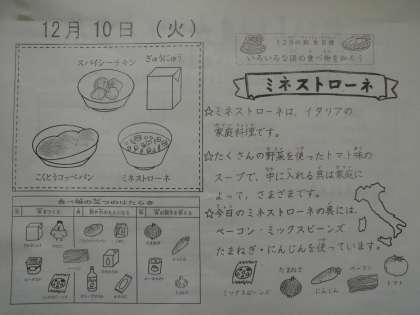 12月10日(火)
スパイシーチキン
ぎゅうにゅう
こくとうコッペパン
ミネストローネ
12月の給食目標
いろいろな国の食べ物を知ろう
ミネストローネ
☆ミネストローネは、イタリアの
家庭料理です。
☆たくさんの野菜を使ったトマト味の
スープで、中に入れる具は家庭に
よって、さまざまです。
☆今日のミネストローネの具には、
ベーコン・ミックスビーンズ
たまねぎ・にんじんを使っています。
ミックスビーンズ
たまねぎ
にんじん
ベーコン
トマト
食べ物の3つのはたらき